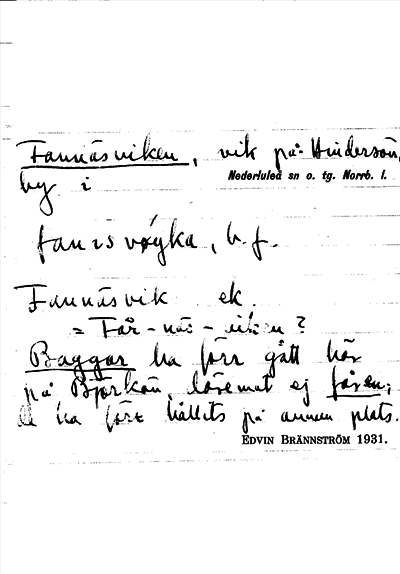 Fannäsviken, vik på Hindersön,
by i Nederluleå sn o. tg. Norrb. l.
fanɪsvøyka, b.f.
Fannäsvik ek.
= Får-näs-viken?
Baggar ha förr gått här
på Björkön, däremot ej fåren;
de ha förr hållits på annan plats.
EDVIN BRÄNNSTRÖM 1931.